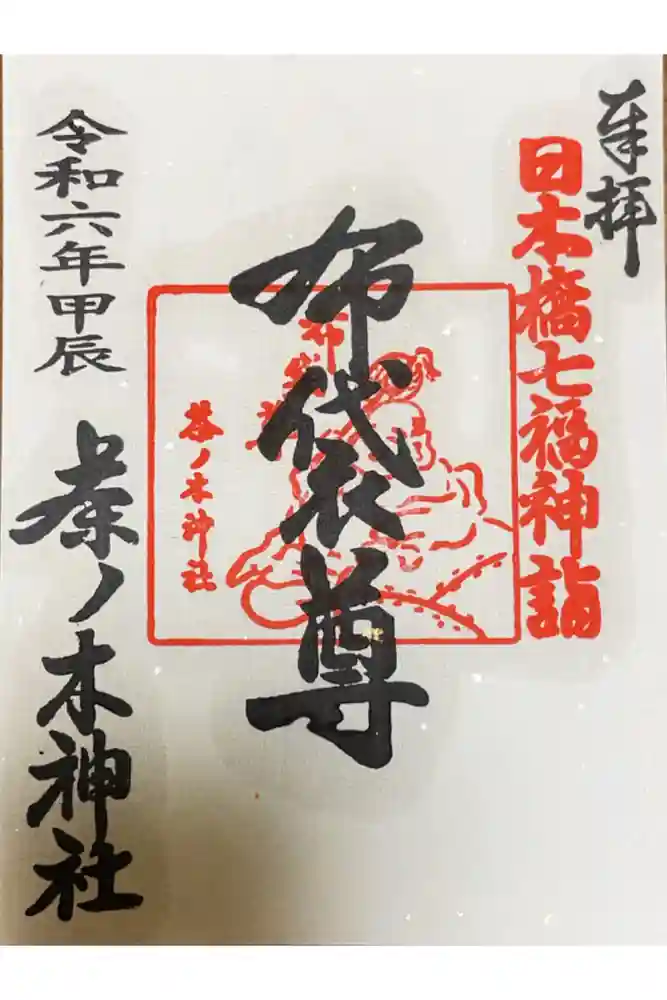 奉拝
日本橋七福神詣
布袋尊
布袋神
茶ノ木神社
令和六年甲辰
茶ノ木神社